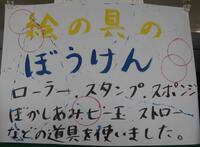 絵の具の
ぼうけん
ローラー、スタンプ、スポンジ
ぼかしあみ、ビー玉、ストロー
などの道具を使いました。